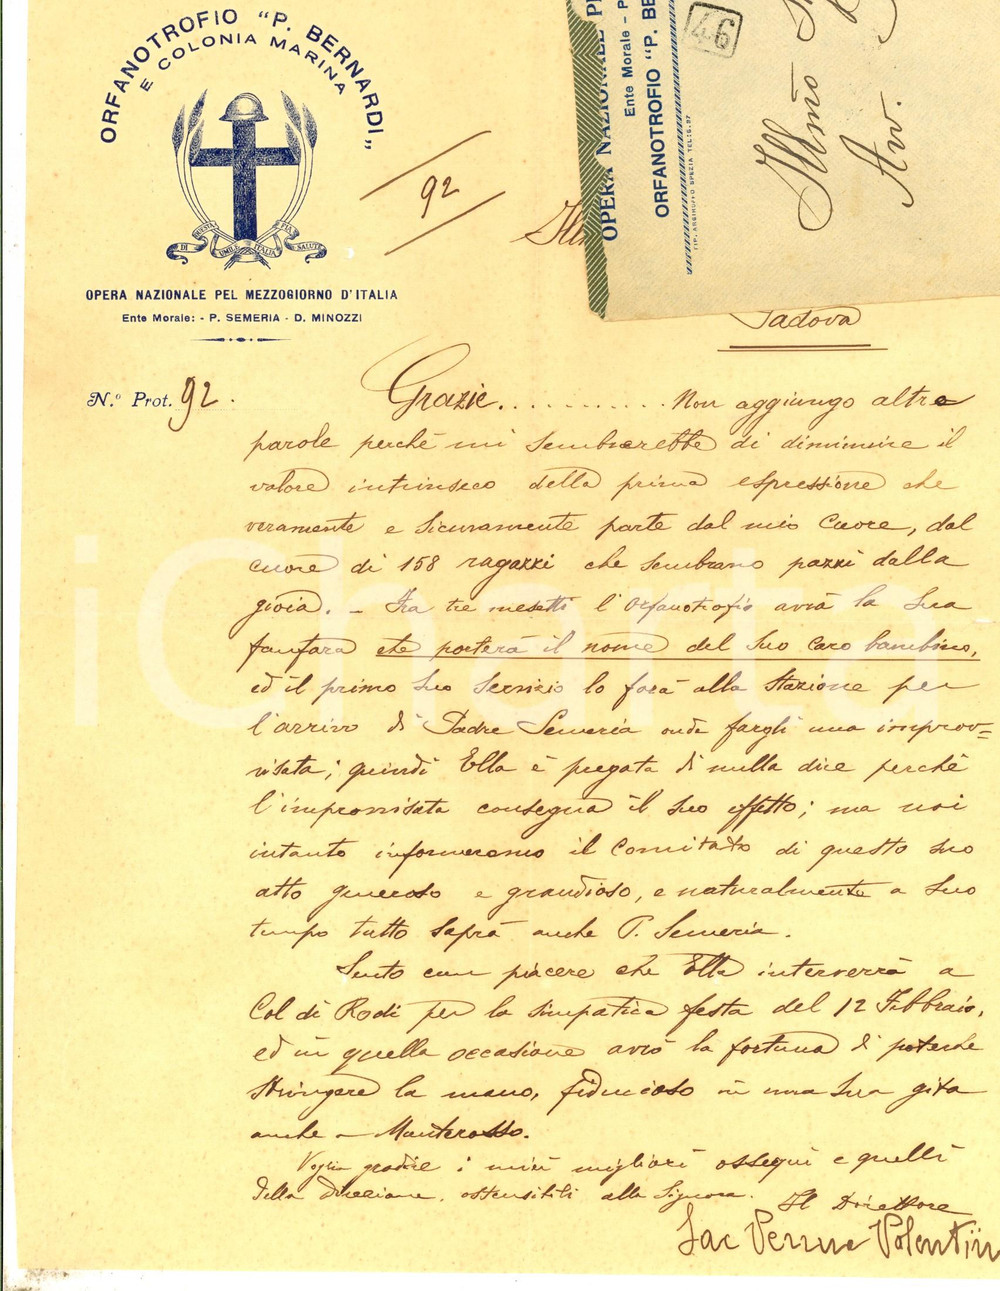 ORFANOTROFIO "P. BERNARDI"
E COLONIA MARINA
DI QUESTA UMILE ITALIA FIA SALUTE
OPERA NAZIONALE PEL MEZZOGIORNO D'ITALIA
Ente Morale: - P. SEMERIA - D. MINOZZI
92
OPERA NAZIONALE PE
Ente Morale - P
ORFANOTROFIO "P. BE
46
Illmo
Av.
Padova
N.º Prot. 92.
Grazie. . . . . . . . . . . Non aggiungo altre
parole perchè mi sembrerebbe di diminuire il
valore intrinseco della prima espressione che
veramente e sicuramente parte dal mio cuore, dal
cuore di 158 ragazzi che sembrano pazzi dalla
gioia. - Fra tre mesetti l'orfanotrofio avrà la sua
fanfara che porterà il nome del suo caro bambino,
ed il primo suo servizio lo farà alla stazione per
l'arrivo di Padre Semeria onde fargli una improv=
visata; quindi Ella è pregata di nulla dire perchè
l'improvvisata consegua il suo effetto; ma noi
intanto informeremo il Comitato di questo suo
atto generoso e grandioso, e naturalmente a suo
tempo tutto saprà anche P. Semeria.
Sento con piacere che Ella interverrà a
Col di Rodi per la simpatica festa del 12 Febbraio,
ed in quella occasione avrò la fortuna di poterle
stringere la mano, fiducioso in una sua gita
anche a Monterosso.
Voglia gradire i miei migliori ossequi e quelli
della Direzione, ostensibili alla Signora. Il Direttore
iCharta